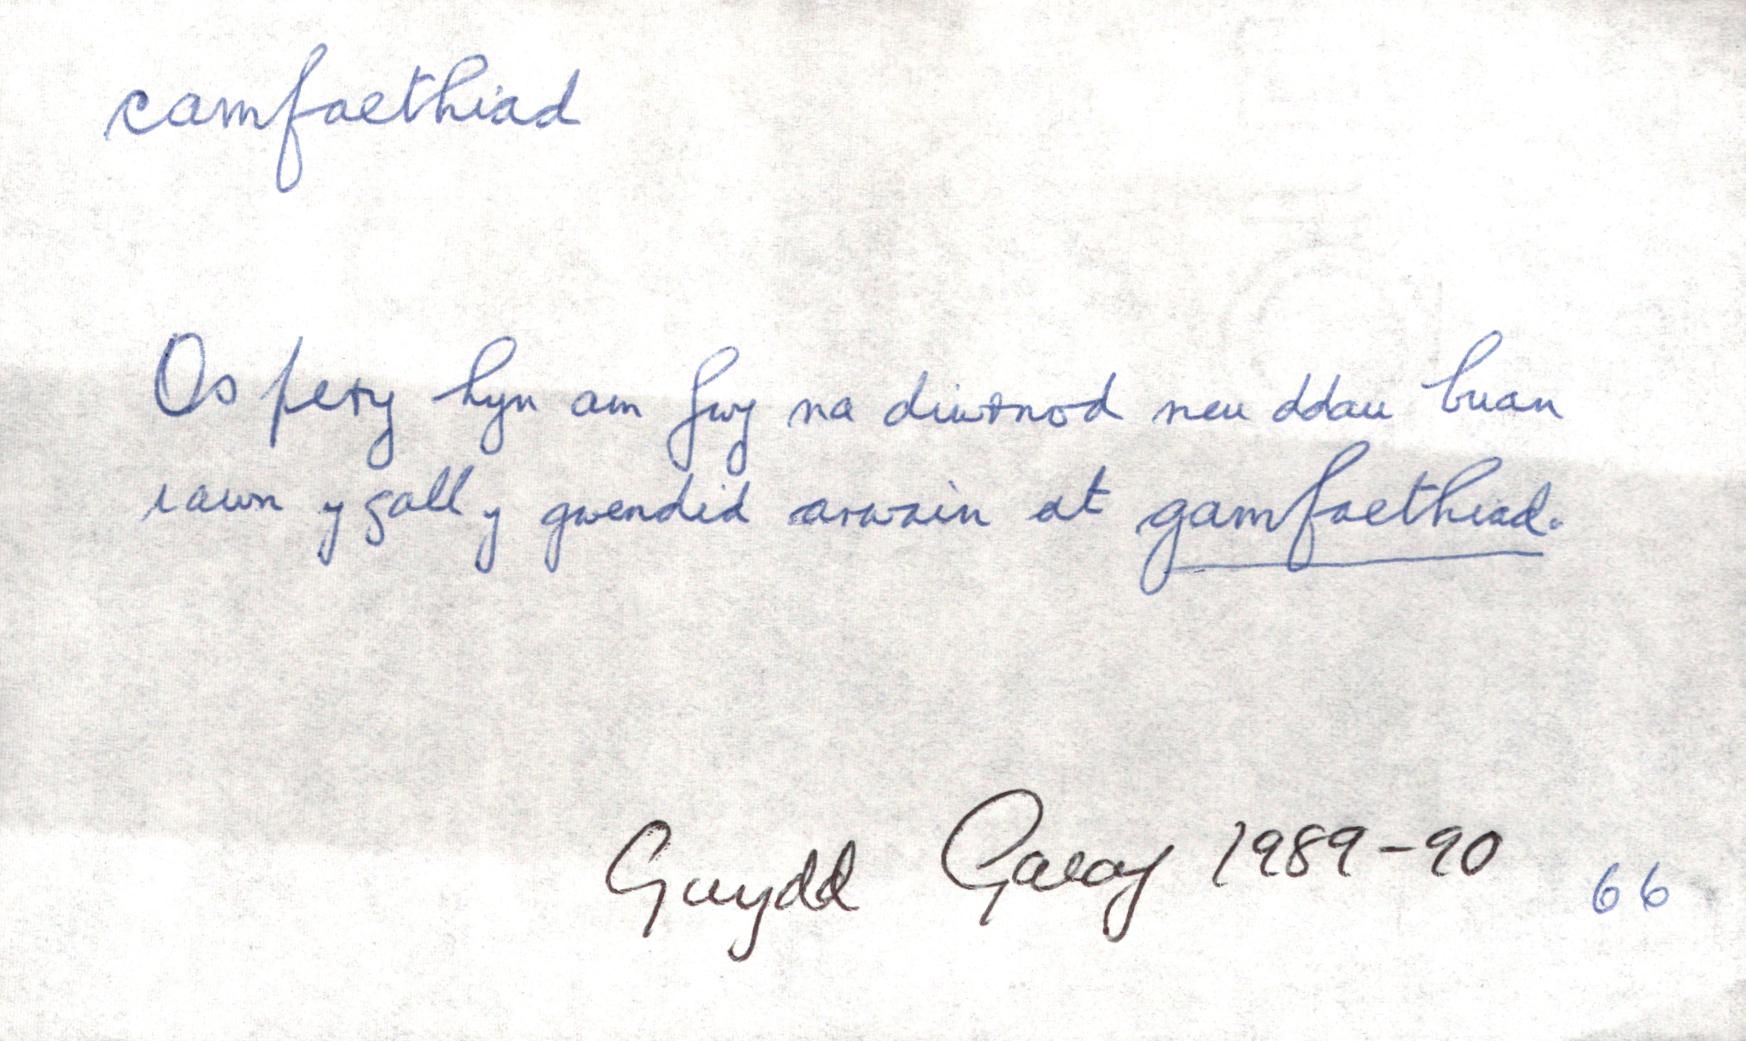 camfaethiad
Os pery hyn am fwy na diwrnod neu ddau buan
iawn y gall y gwendid arwain at gamfaethiad.
Gwydd 1989-90 66